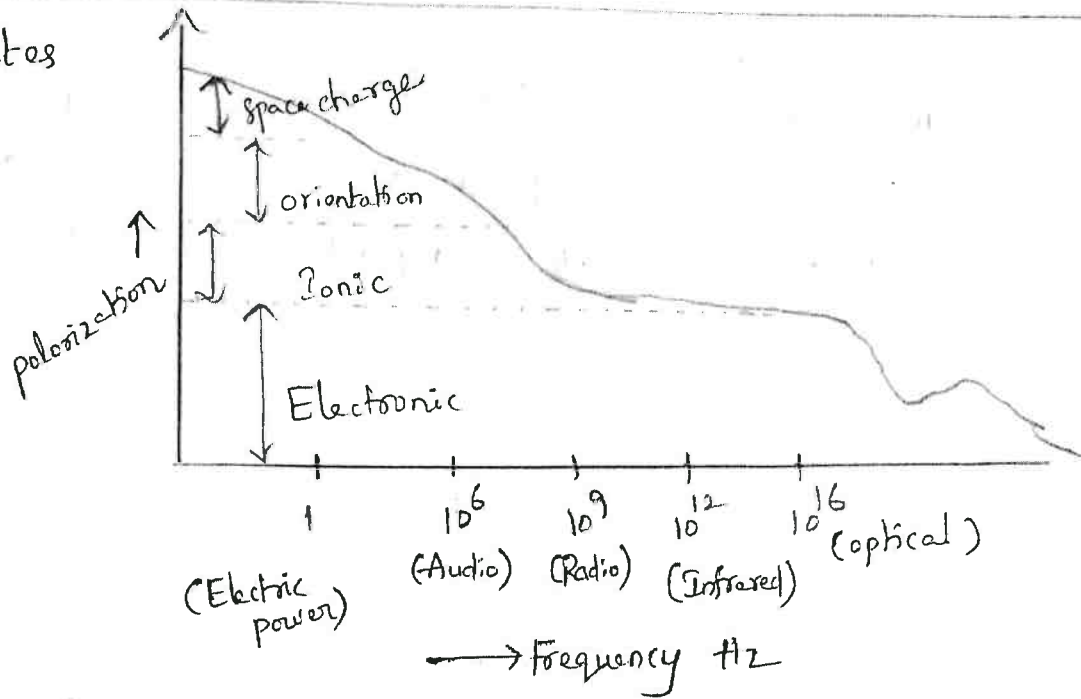 tes
space charge
orientation
Ionic
Electronic
polarization
1 10^6 10^9 10^12 10^16
(Electric power) (Audio) (Radio) (Infrared) (optical)
Frequency Hz